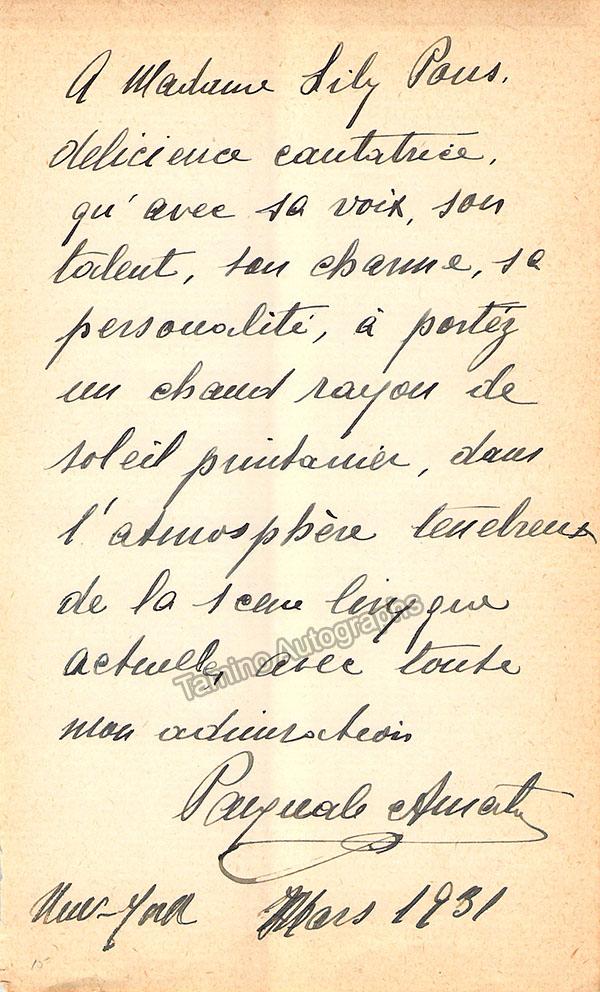 A Madame Lily Pons.
delicience cantatrice,
qu'avec sa voix, son
talent, son charme, sa
personalité, à portéz
un chaud rayon de
soleil printanier, dans
l'atmosphère tenebreux
de la scene lirique
actuelle, avec toute
mon admiration
Pasquale Amato
New-York Mars 1931
Tamino Autographs
15